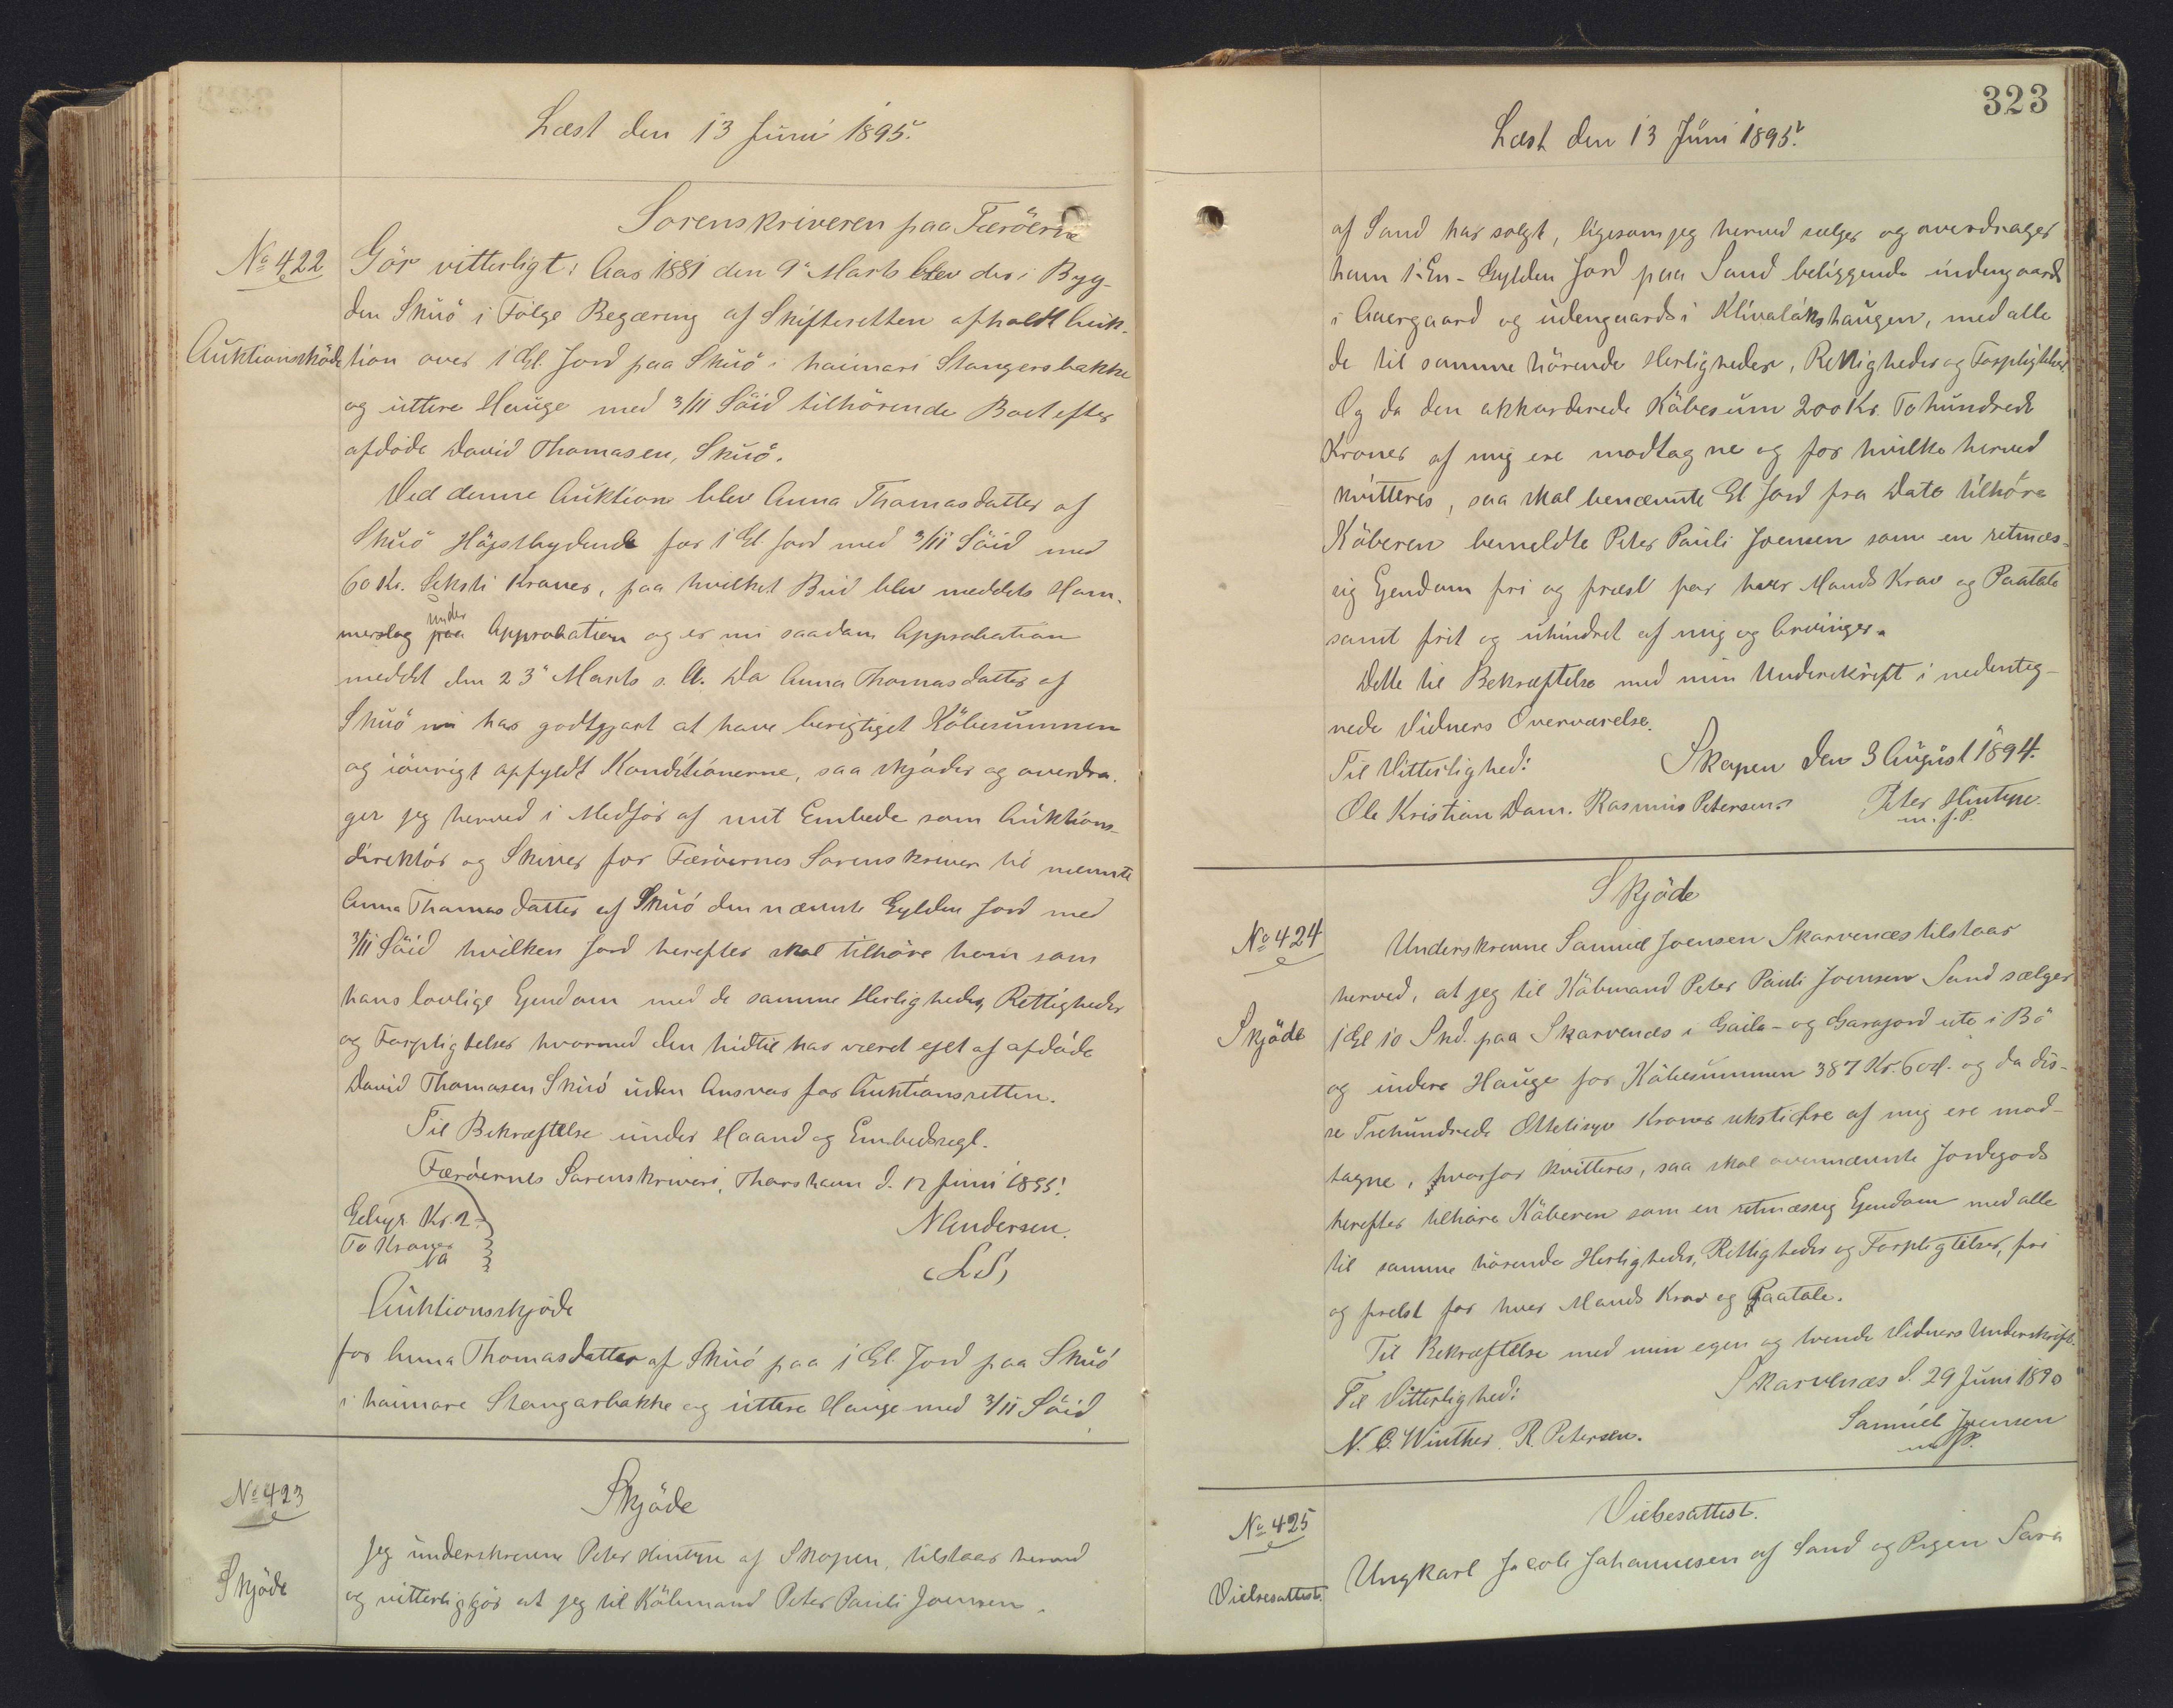 Læst den 13 Juni 1895.
Sorenskriveren paa Færöerne
No 422
Gör vitterligt: Aar 1881 den 9' Marts blev der i Byg-
den Skuö i Fölge Begæring af Skifteretten afholdt Auk-
Auktionsskjöde
tion over 1 Gl. Jord paa Skuö i haimari Stangersbakke
og uttere Hauge med 3/11 Söid tilhörende Boet efter
afdöde David Thomasen, Skuö.
Ved denne Auktion blev Anna Thomasdatter af
Skuö Höjstbydende for 1 Gl. Jord med 3/11 Söid med
60 Kr. Seksti Kroner, paa hvilket Bud blev meddelt Ham-
under
merslag paa Approbation og er nu saadan Approbation
meddelt den 23' Marts s. A. Da Anna Thomasdatter af
Skuö nu har godtgjort at have berigtiget Köbesummen
og iövrigt opfyldt Konditionerne, saa skjöder og overdra-
ger jeg herved i Medför af mit Embede som Auktions-
direktör og Skriver for Færöernes Sorenskriver til nævnte
Anna Thomasdatter af Skuö den nævnte Gylden Jord med
3/11 Söid hvilken Jord herefter skal tilhöre ham som
hans lovlige Ejendom med de samme Herligheder, Rettigheder
og Forpligtelser hvormed den hidtil har været ejet af afdöde
David Thomasen Skuö uden Ansvar for Auktionsretten.
Til Bekræftelse under Haand og Embedssegl.
Færöernes Sorenskriveri, Thorshavn d. 12 Juni 1895.
Gebyr Kr. 2.-
To Kroner
NA
NAndersen.
(L.S.)
Auktionsskjöde
for Anna Thomasdatter af Skuö paa 1 Gl. Jord paa Skuö
i haimare Stangarbakke og uttere Hauge med 3/11 Söid
No 423
Skjöde
Skjöde
Jeg underskrevne Peter Hentze af Skopen, tilstaar herved
og vitterliggjör at jeg til Köbmand Peter Pauli Joensen
323
Læst den 13 Juni 1895.
af Sand har solgt, ligesom jeg herved sælger og overdrager
ham 1-En-Gylden Jord paa Sand beliggende indengaards
i Aaergaard og udengaards i Klivalókshaugen, med alle
de til samme hörende Herligheder, Rettigheder og Forpligtelser.
Og da den akkorderede Köbesum 200 Kr. Tohundrede
Kroner af mig ere modtagne og for hvilke herved
kvitteres, saa skal benævnte Gl Jord fra Dato tilhöre
Köberen bemeldte Peter Pauli Joensen som en retmæs-
sig Ejendom fri og frelst for hver Mands Krav og Paatale
samt frit og uhindret af mig og Arvinger.
Dette til Bekræftelse med min Underskrift i nedenteg-
nede Vidners Overværelse.
Skopen den 3 August 1894.
Til Vitterlighed:
Ole Kristian Dam. Rasmus Petersen.
Peter Hentze.
m. f. P.
Skjöde
No 424
Skjöde
Underskrevne Samuel Joensen Skarvenæs tilstaar
herved, at jeg til Köbmand Peter Pauli Joensen Sand sælger
1 Gl 10 Skd. paa Skarvenæs i Gaila- og Garajord ute i Bö
og indere Hauge for Köbesummen 387 Kr. 60 Ø. og da dis-
se Trehundrede Ottetisyv Kroner sekstiØre af mig ere mod-
tagne, hvorfor kvitteres, saa skal ovennævnte Jordegods
herefter tilhöre Köberen som en retmæssig Ejendom med alle
til samme hörende Herligheder, Rettigheder og Forpligtelser, fri
og frelst for hver Mands Krav og Paatale.
Til Bekræftelse med min egen og tvende Vidners Underskrift.
Skarvenæs d. 29 Juni 1890
Til Vitterlighed:
N. C. Winther. R. Petersen.
Samuel Joensen
m f P.
No 425
Vielsesattest.
Vielsesattest.
Ungkarl Jacob Johannesen af Sand og Pigen Sara